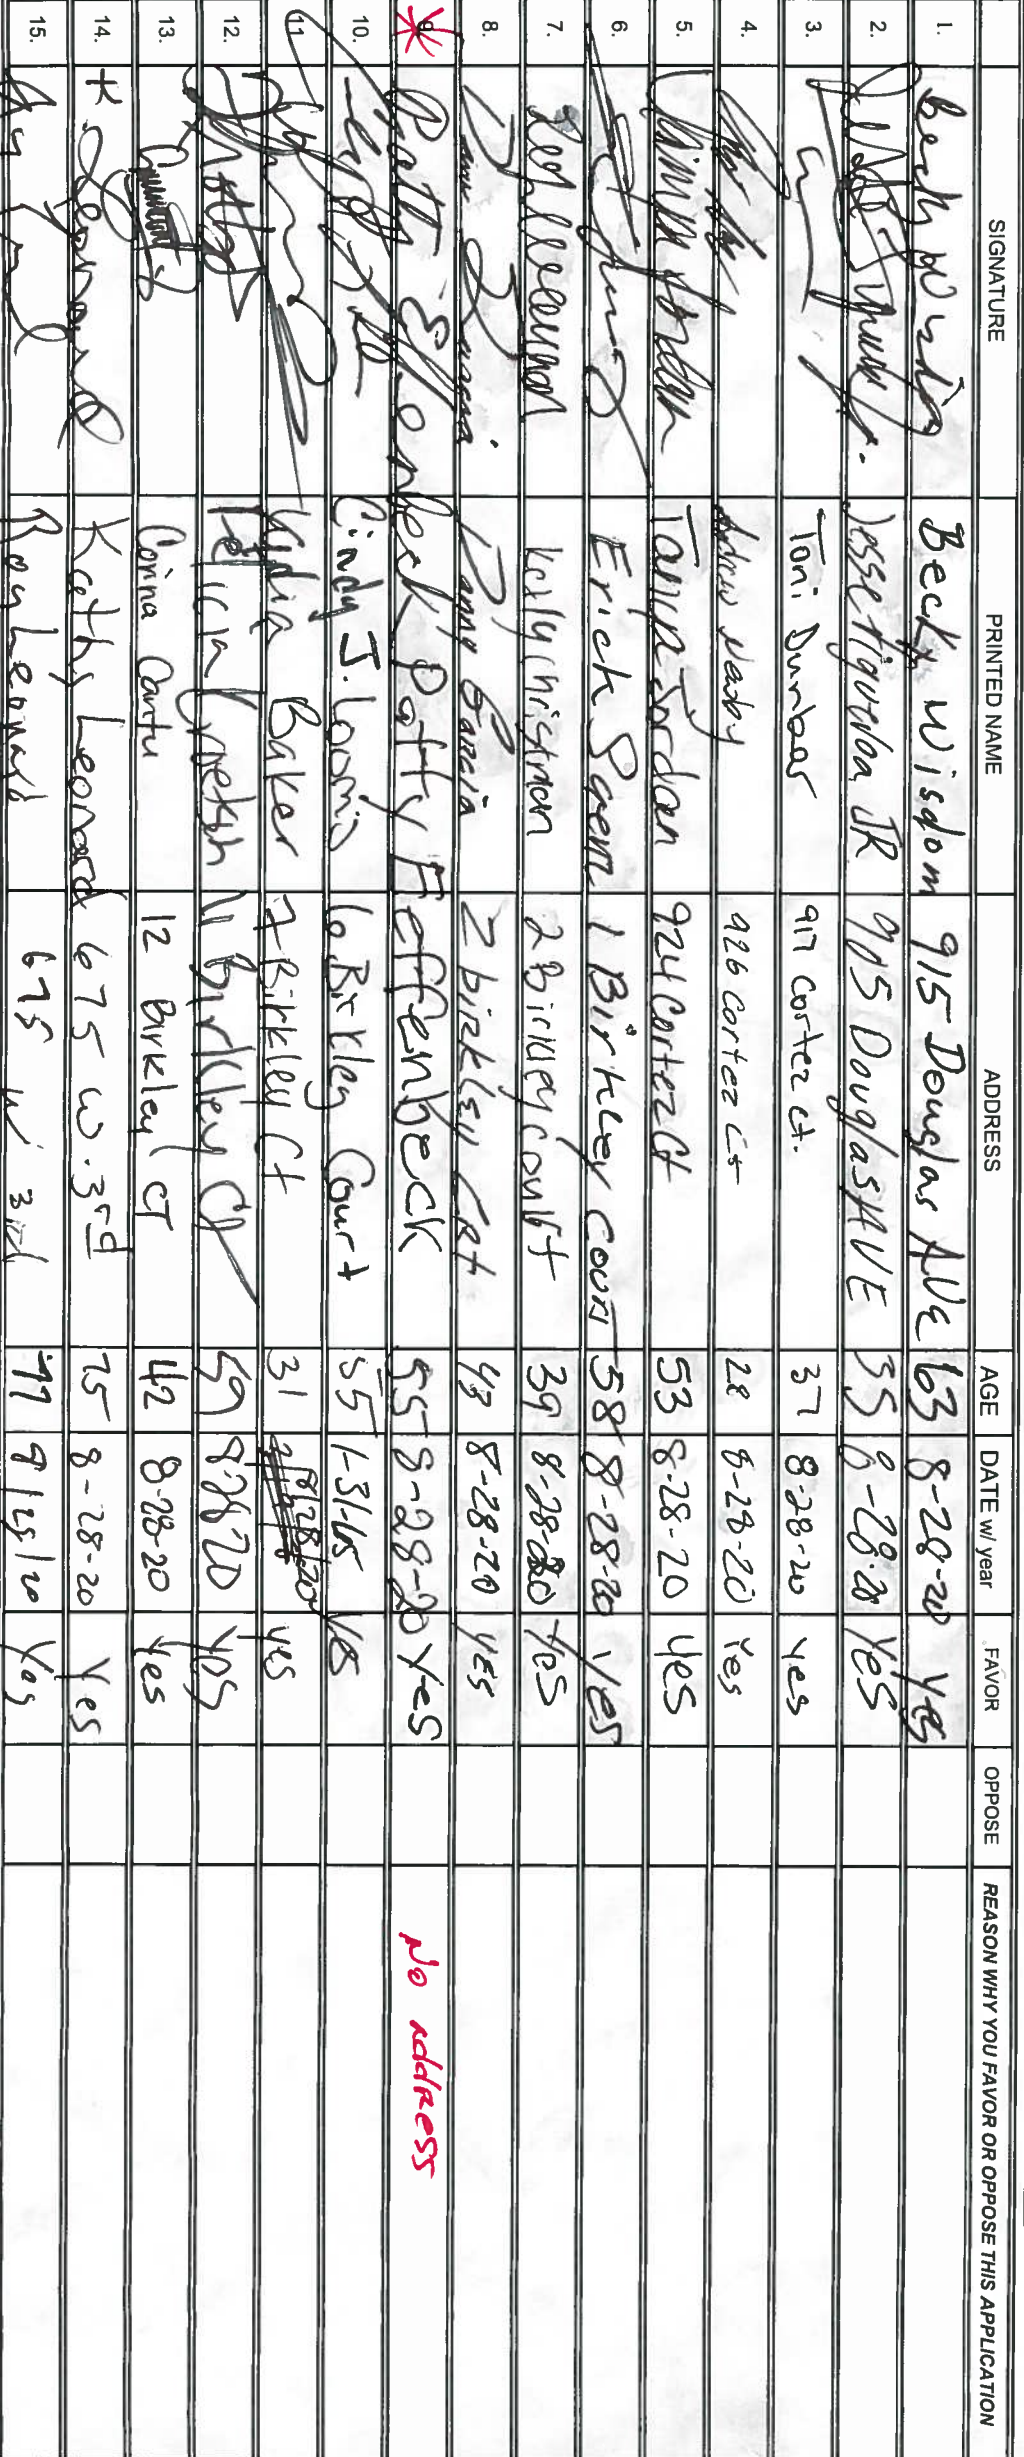 SIGNATURE PRINTED NAME ADDRESS AGE DATE w/ year FAVOR OPPOSE REASON WHY YOU FAVOR OR OPPOSE THIS APPLICATION
1. Becky Wisdom Becky Wisdom 915 Douglas AVE 63 8-28-20 Yes
2. Jesse Figueroa JR 905 Douglas AVE 35 8-28-20 Yes
3. Toni Dunbar 917 Cortez ct. 37 8-28-20 Yes
4. Andrew Neaby 926 Cortez Ct 28 8-28-20 Yes
5. Tamra Jordan 924 Cortez Ct 53 8-28-20 Yes
6. Erick 1 Birkley Court 58 8-28-20 Yes
7. Kelly Christman 2 Birkley Court 39 8-28-20 Yes
8. Danny Garcia 2 birkley CRt 43 8-28-20 Yes
9. Patty Effenbeck Patty Effenbeck 55 8-28-20 Yes No Address
10. Cindy J. Loomis 6 Birkley Court 55 1-31-65 Yes
11. Kydia Baker 7 Birkley Ct 31 8/28/20 yes
12. Felicia 11 Birkley Ct 59 8-28-20 Yes
13. Corina Cantu 12 Birkley CT 42 8-28-20 Yes
14. K Leonard Kathy Leonard 675 W. 3rd 75 8-28-20 Yes
15. Roy Leonard 675 W 3rd 77 8/28/20 Yes